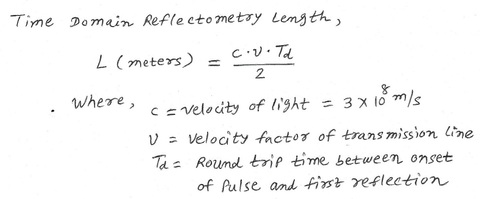 Time Domain Reflectometry Length,
L (meters) = c·v·Td / 2
. Where, c = velocity of light = 3 x 10⁸ m/s
v = velocity factor of transmission line
Td = Round trip time between onset
of Pulse and first reflection